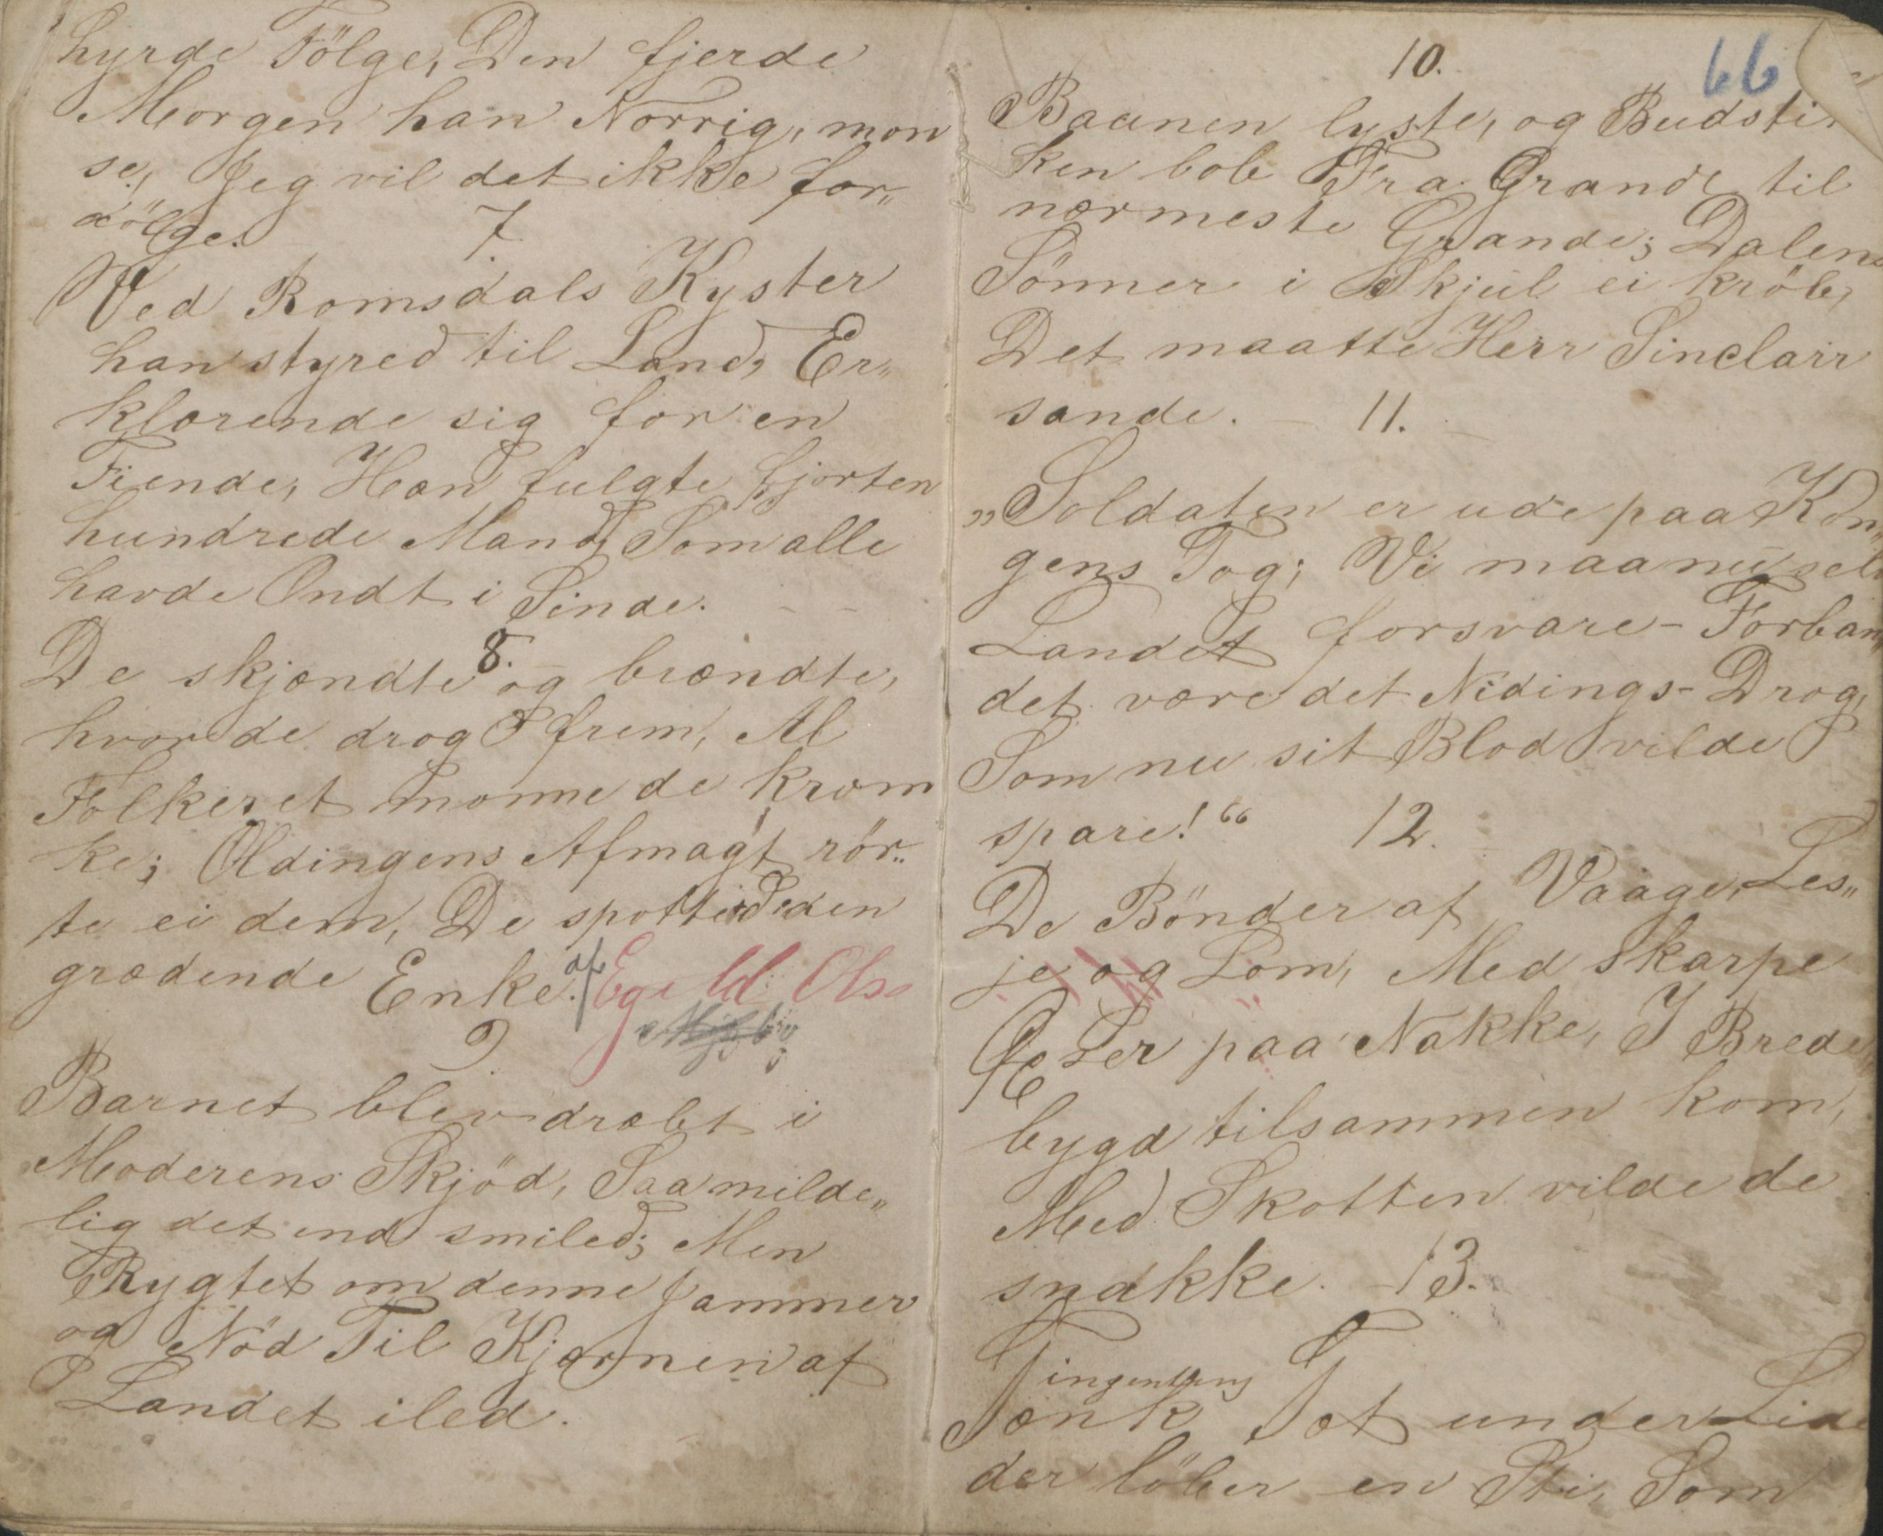 hyrde Fölge, Den fjerde
Morgen han Norrig, mon
se, Jeg vil det ikke for„
dölge.
7.
Ved Romsdals Kyster
han styred til Land, Er„
klærende sig for en
Fiende, Han fulgte fjorten
hundrede Mand Som alle
havde Ondt i Sinde.
8.
De skjændte og brændte,
hvor de drog frem, Al
Folkeret monne de kræm
ke; Oldingens Afmagt rör„
te ei dem, De spotted den
grædende Enke. af Egeld Ols
9
Barnet blev dræbt i
Moderens Skjöd, Saa milde„
lig det end smiled; Men
Rygtet om denne Jammer
og Nöd Til Kjærnen af
Landet iled.
66
10.
Baunen lyste, og Budsti
ken lob Fra Grande til
nærmeste Grande; Dalens
Sönner i Skjul ei kröb,
Det maatte Herr Sinclair
sande. – 11. –
„Soldaten er ude paa Kon„
gens Tog; Vi maa nu selv
Landet forsvare – Forban„
det være det Nidings-Drog,
Som nu sit Blod vilde
spare!“ 12.
De Bönder af Vaage, Les„
je og Lom, Med skarpe
Öxer paa Nakke, I Brede„
bygd tilsammen kom,
Med Skotten vilde de
snakke. 13.
Tingenting
Tænk Tæt under Lide
der löber en Sti, Som